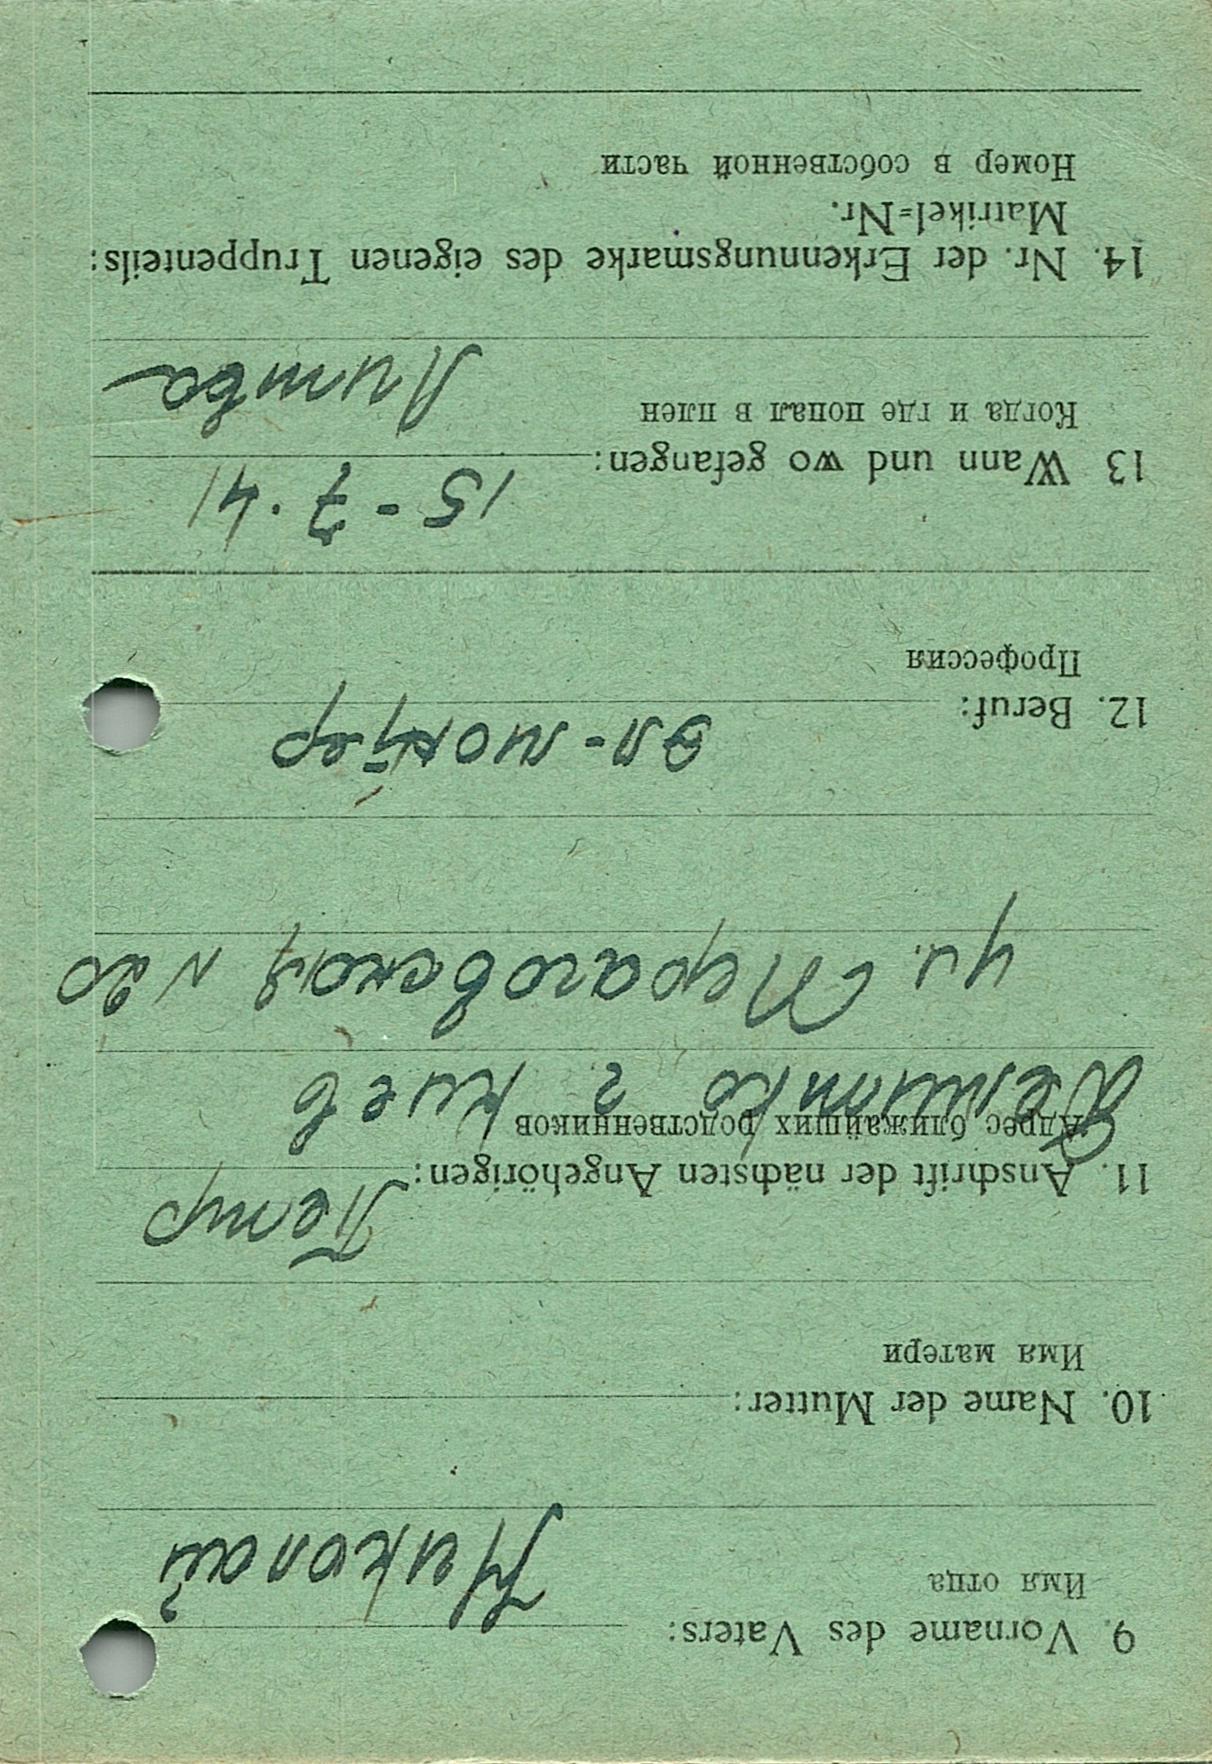 9. Vorname des Vaters:
Имя отца
Николай
10. Name der Mutter:
Имя матери
11. Anschrift der nächsten Angehörigen: Петр
Адрес ближайших родственников
г. Киев
ул. N 20
12. Beruf:
Профессия
эл-монтер
13 Wann und wo gefangen: 15-7.41
Когда и где попал в плен
Литва
14. Nr. der Erkennungsmarke des eigenen Truppenteils:
Matrikel=Nr.
Номер в собственной части